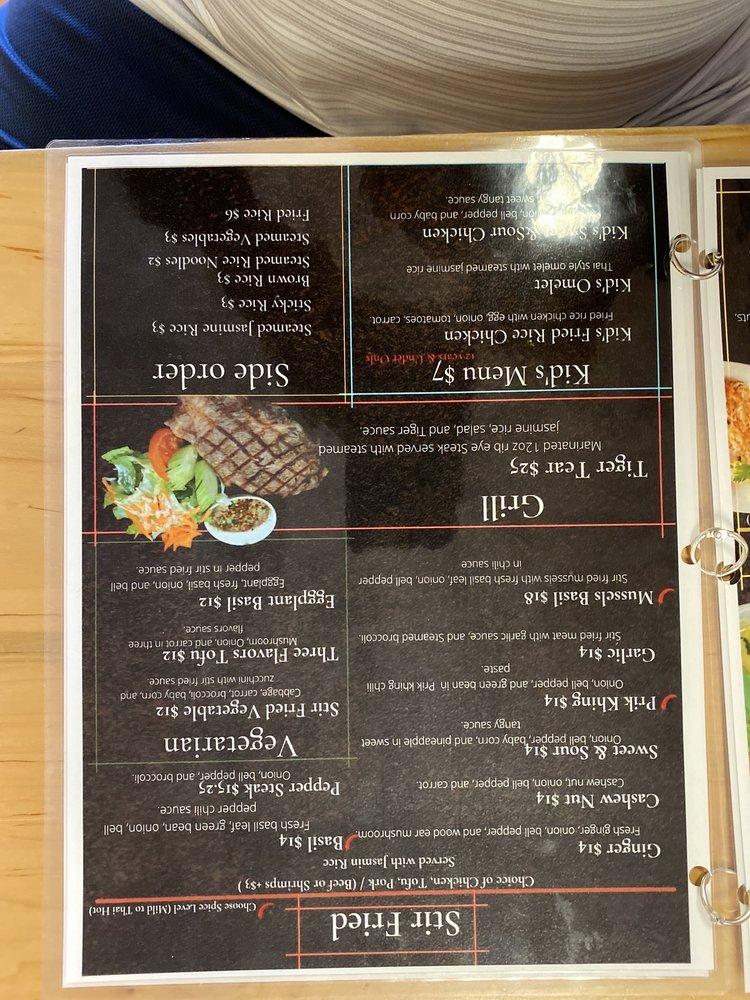 Stir Fried
Choose Spice Level (Mild to Thai Hot)
Choice of Chicken, Tofu, Pork / (Beef or Shrimps +$3 )
Served with Jasmin Rice
Ginger $14
Fresh ginger, onion, bell pepper, and wood ear mushroom.
Cashew Nut $14
Cashew nut, onion, bell pepper, and carrot.
Sweet & Sour $14
Onion, bell pepper, baby corn, and pineapple in sweet
tangy sauce.
Prik Khing $14
Onion, bell pepper, and green bean in Prik khing chili
paste.
Garlic $14
Stir fried meat with garlic sauce, and Steamed broccoli.
Mussels Basil $18
Stir fried mussels with fresh basil leaf, onion, bell pepper
in chili sauce
Basil $14
Fresh basil leaf, green bean, onion, bell
pepper chili sauce.
Pepper Steak $15.25
Onion, bell pepper, and broccoli.
Vegetarian
Stir Fried Vegetable $12
Cabbage, carrot, broccoli, baby corn, and
zucchini with stir fried sauce.
Three Flavors Tofu $12
Mushroom, Onion, and carrot in three
flavors sauce.
Eggplant Basil $12
Eggplant, fresh basil, onion, and bell
pepper in stir fried sauce.
Grill
Tiger Tear $25
Marinated 12oz rib eye Steak served with steamed
jasmine rice, salad, and Tiger sauce.
Kid's Menu $7
12 years & Under Only
Kid's Fried Rice Chicken
Fried rice chicken with egg, onion, tomatoes, carrot.
Kid's Omelet
Thai style omelet with steamed jasmine rice
Kid's Sweet & Sour Chicken
onion, bell pepper, and baby corn
sweet tangy sauce.
Side order
Steamed Jasmine Rice $3
Sticky Rice $3
Brown Rice $3
Steamed Rice Noodles $2
Steamed Vegetables $3
Fried Rice $6
uts.